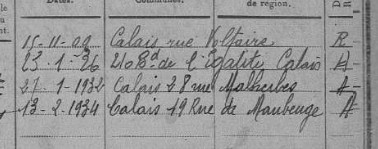 Dates. Communes. de région.
15-11-22 Calais rue Voltaire R
23-1-26 210 Bd de l'Égalité Calais A
27-1-1932 Calais 28 rue Malherbes A
13-2-1934 Calais 19 Rue de Maubeuge A